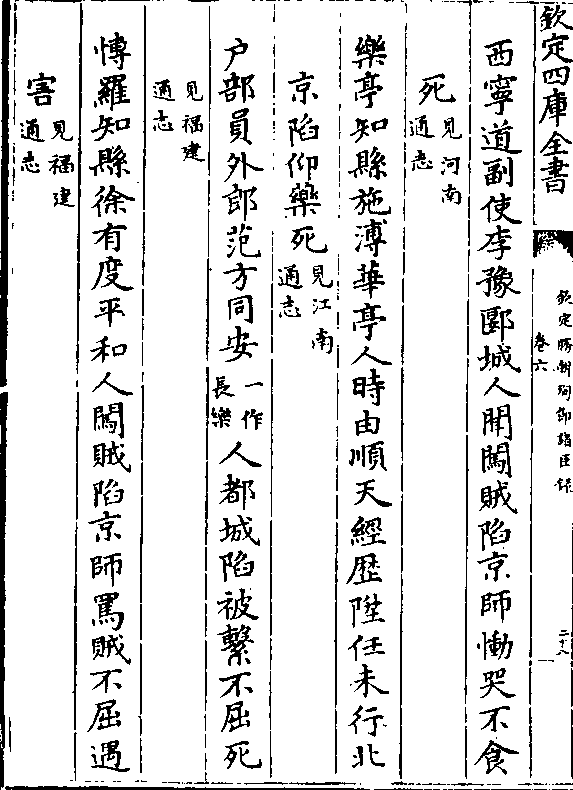 欽定四庫全書
欽定勝朝殉節諸臣錄
卷六
二十八
西寧道副使李豫郾城人聞闖賊陷京師慟哭不食
死見河南通志
樂亭知縣施溥華亭人時由順天經歷陞任未行北
京陷仰藥死見江南通志
户部員外郎范方同安一作長樂人都城陷被繫不屈死
見福建通志
愽羅知縣徐有度平和人闖賊陷京師罵賊不屈遇
害見福建通志